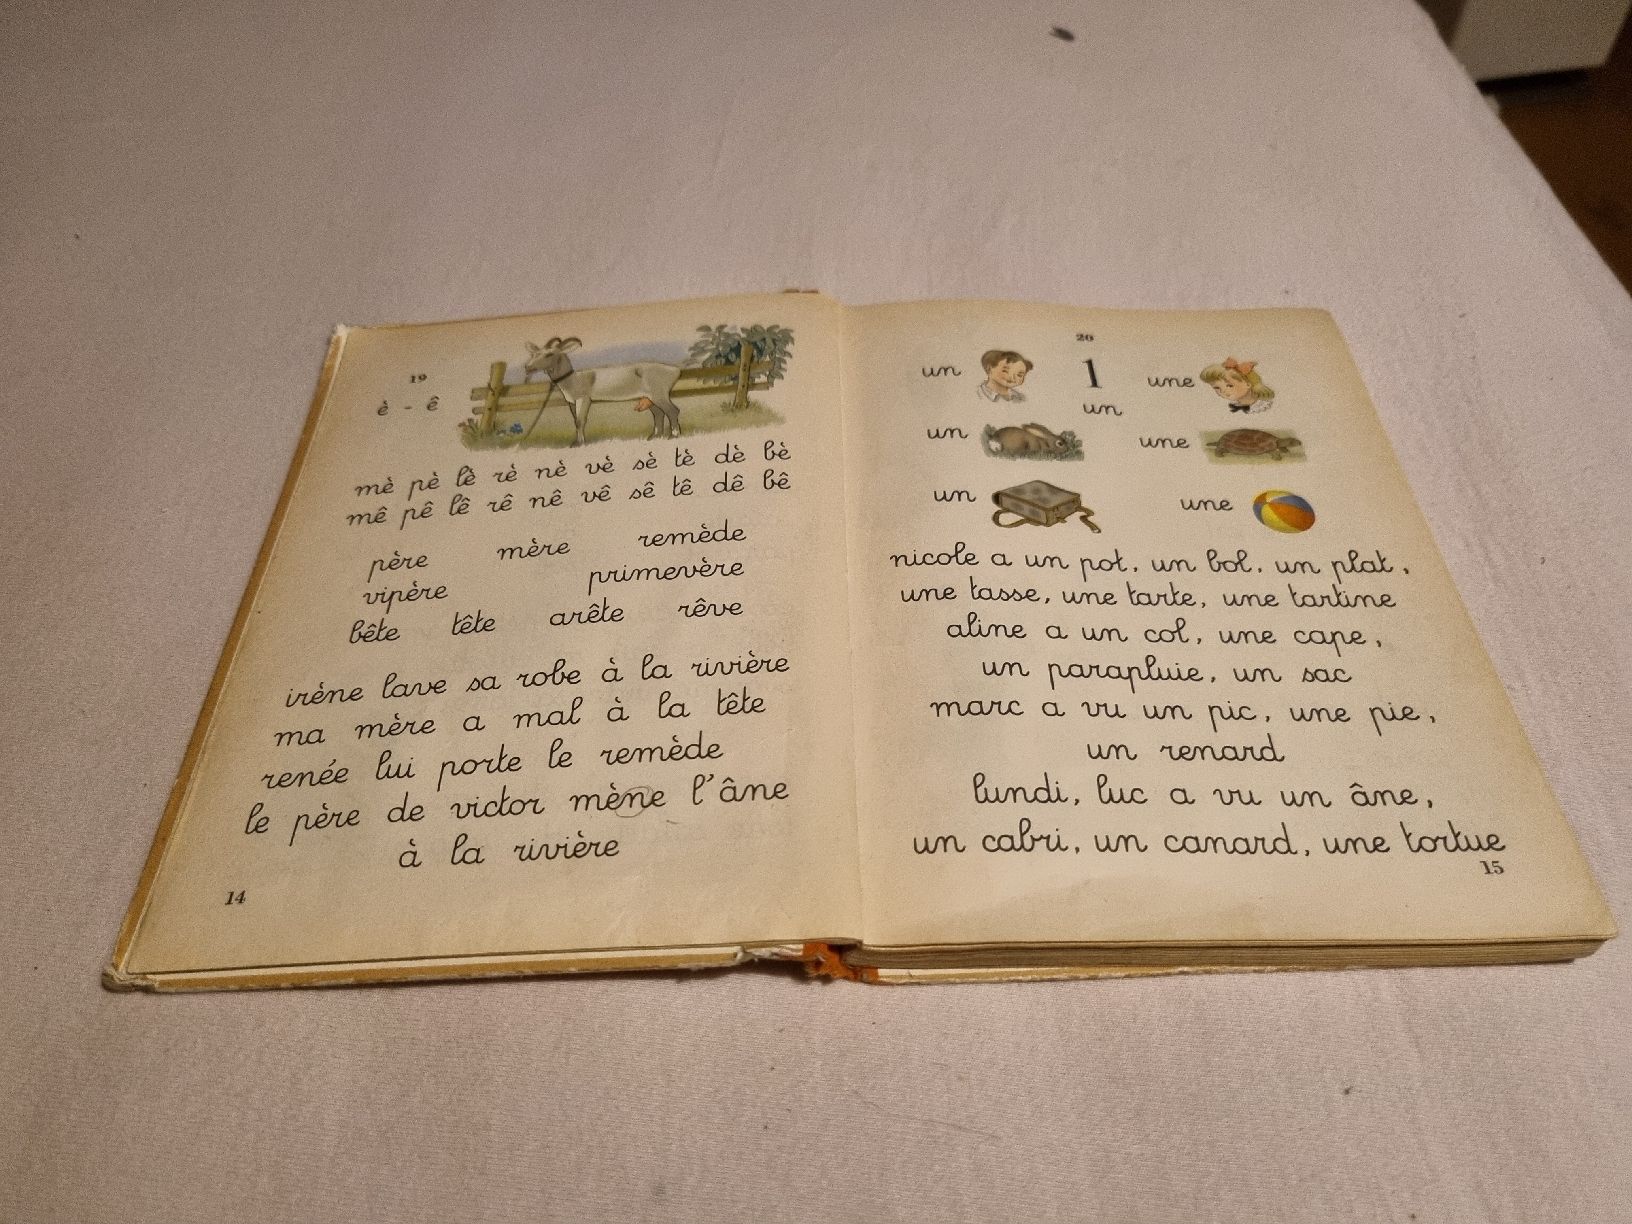 19
è - ê
mè pè lè rè nè vè sè tè dè bè
mê pê lê rê nê vê sê tê dê bê
père mère remède
vipère primevère
bête tête arête rêve
irène lave sa robe à la rivière
ma mère a mal à la tête
renée lui porte le remède
le père de victor mène l'âne
à la rivière
14
20
un 1 une
un
un une
un une
nicole a un pot, un bol, un plat,
une tasse, une tarte, une tartine
aline a un col, une cape,
un parapluie, un sac
marc a vu un pic, une pie,
un renard
lundi, luc a vu un âne,
un cabri, un canard, une tortue
15